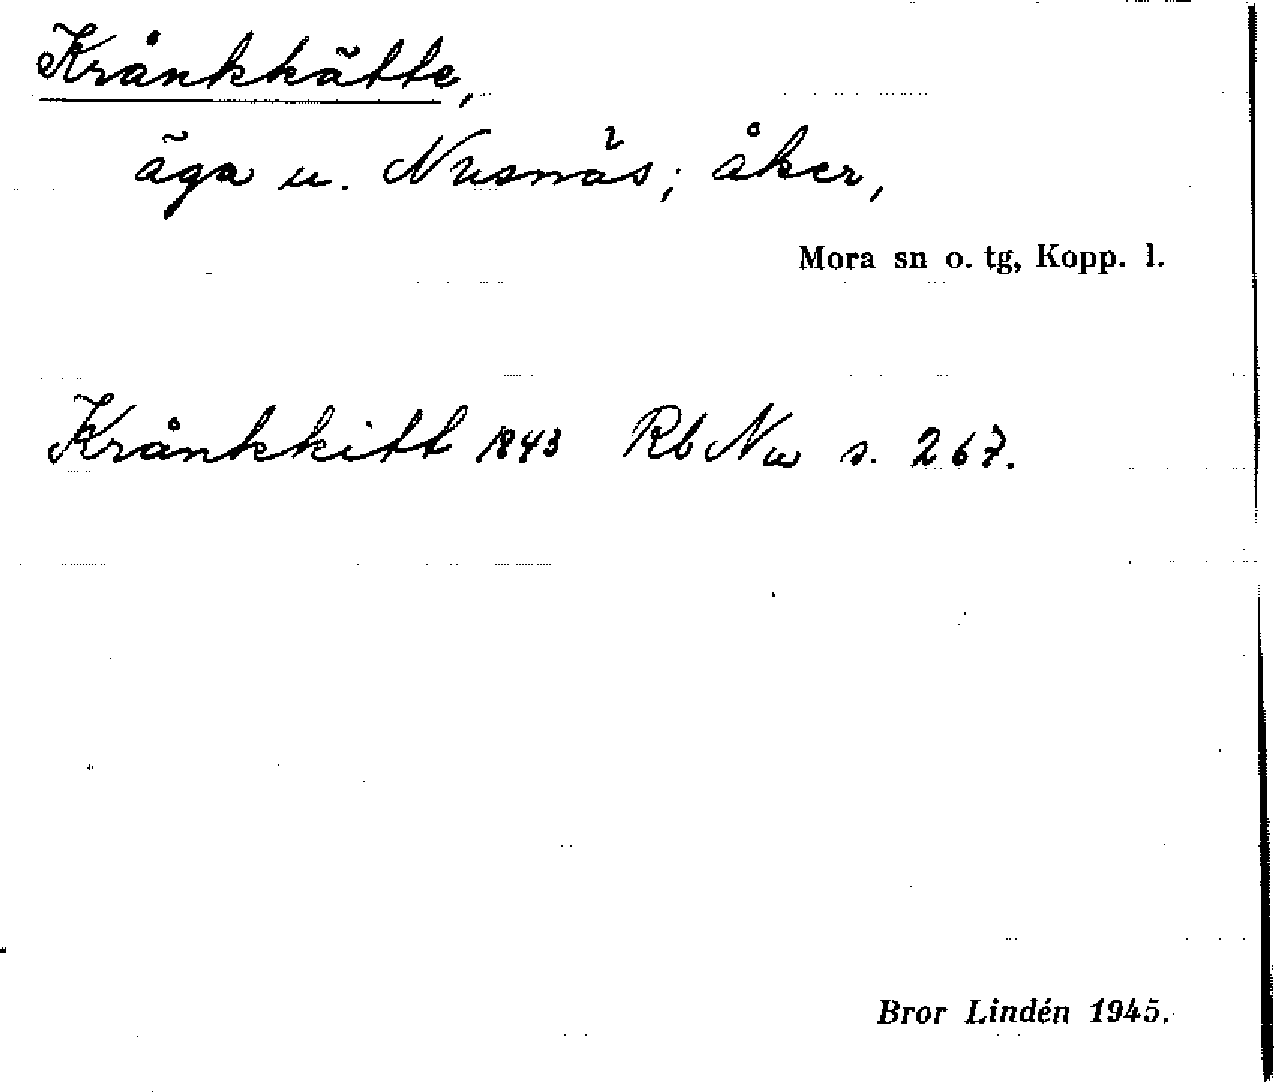 Krånkkätte,
äga u. Nusnäs; åker,
Mora sn o. tg, Kopp. l.
Krånkkitt 1843 Rb Nu s. 267.
Bror Lindén 1945.